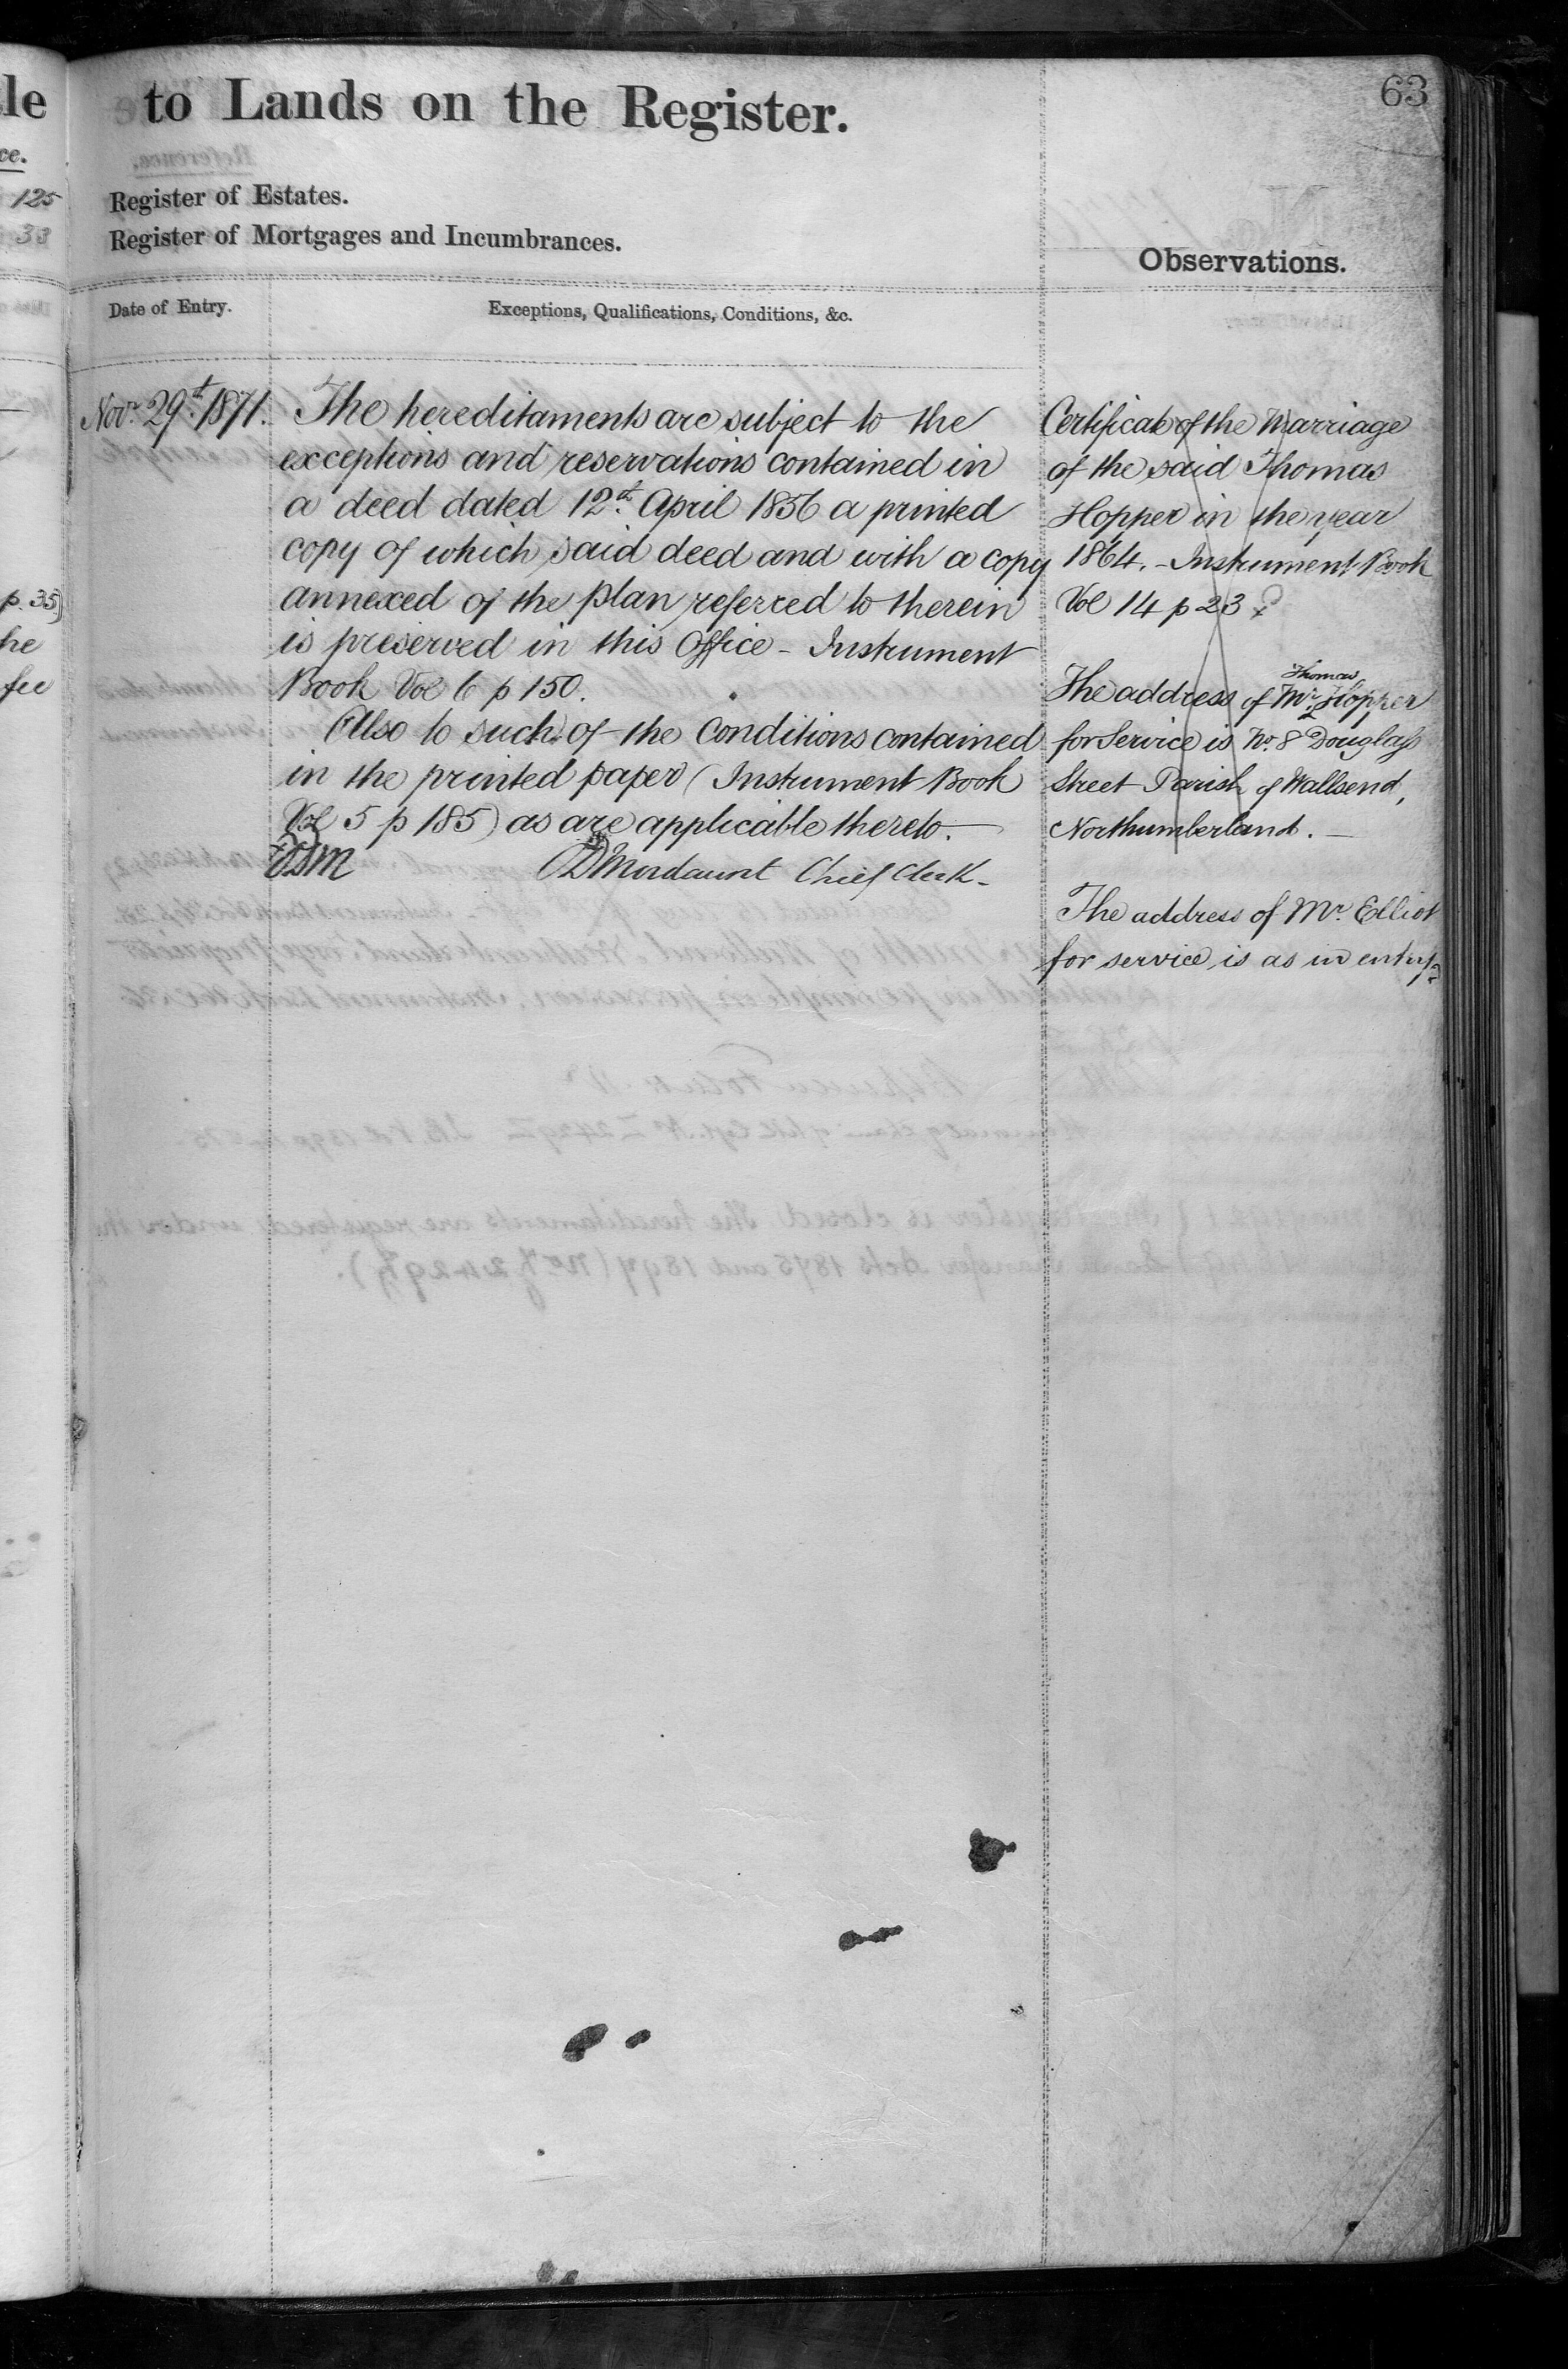 le
ce.
125
33
p. 35)
he
fee
63
to Lands on the Register.
Register of Estates.
Register of Mortgages and Incumbrances.
Observations.
Date of Entry.
Exceptions, Qualifications, Conditions, &c.
Novr. 29th. 1871.
The hereditaments are subject to the
exceptions and reservations contained in
a deed dated 12th. April 1856 a printed
copy of which said deed and with a copy
annexed of the plan referred to therein
is preserved in this Office - Instrument
Book Vol 6 p 150.
Also to such of the Conditions contained
in the printed paper (Instrument Book
Vol 5 p 185) as are applicable thereto. —
Mordaunt Chief Clerk -
Certificate of the Marriage
of the said Thomas
Hopper in the year
1864. - Instrument Book
Vol 14 p 23
The address of Mr. Thomas Hopper
for Service is No. 8 Douglass
Street Parish of Wallsend,
Northumberland. —
The address of Mr. Elliot
for service is as in entry